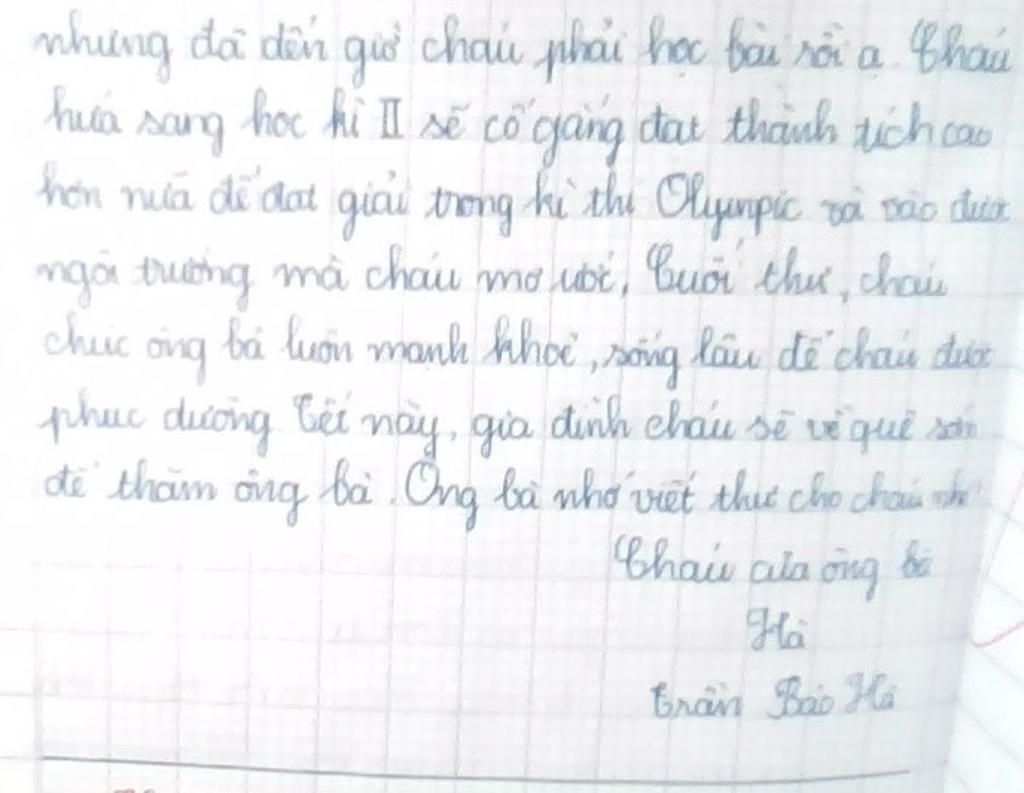 nhưng đã đến giờ cháu phải học bài rồi ạ. Cháu
hứa sang học kì II sẽ cố gắng đạt thành tích cao
hơn nữa để đạt giải trong kì thi Olympic và vào được
ngôi trường mà cháu mơ ước. Cuối thư, cháu
chúc ông bà luôn mạnh khoẻ, sống lâu để cháu được
phục dưỡng. Tết này, gia đình cháu sẽ về quê sớm
để thăm ông bà. Ông bà nhớ viết thư cho cháu nhé
Cháu của ông bà
Hà
Trần Bảo Hà